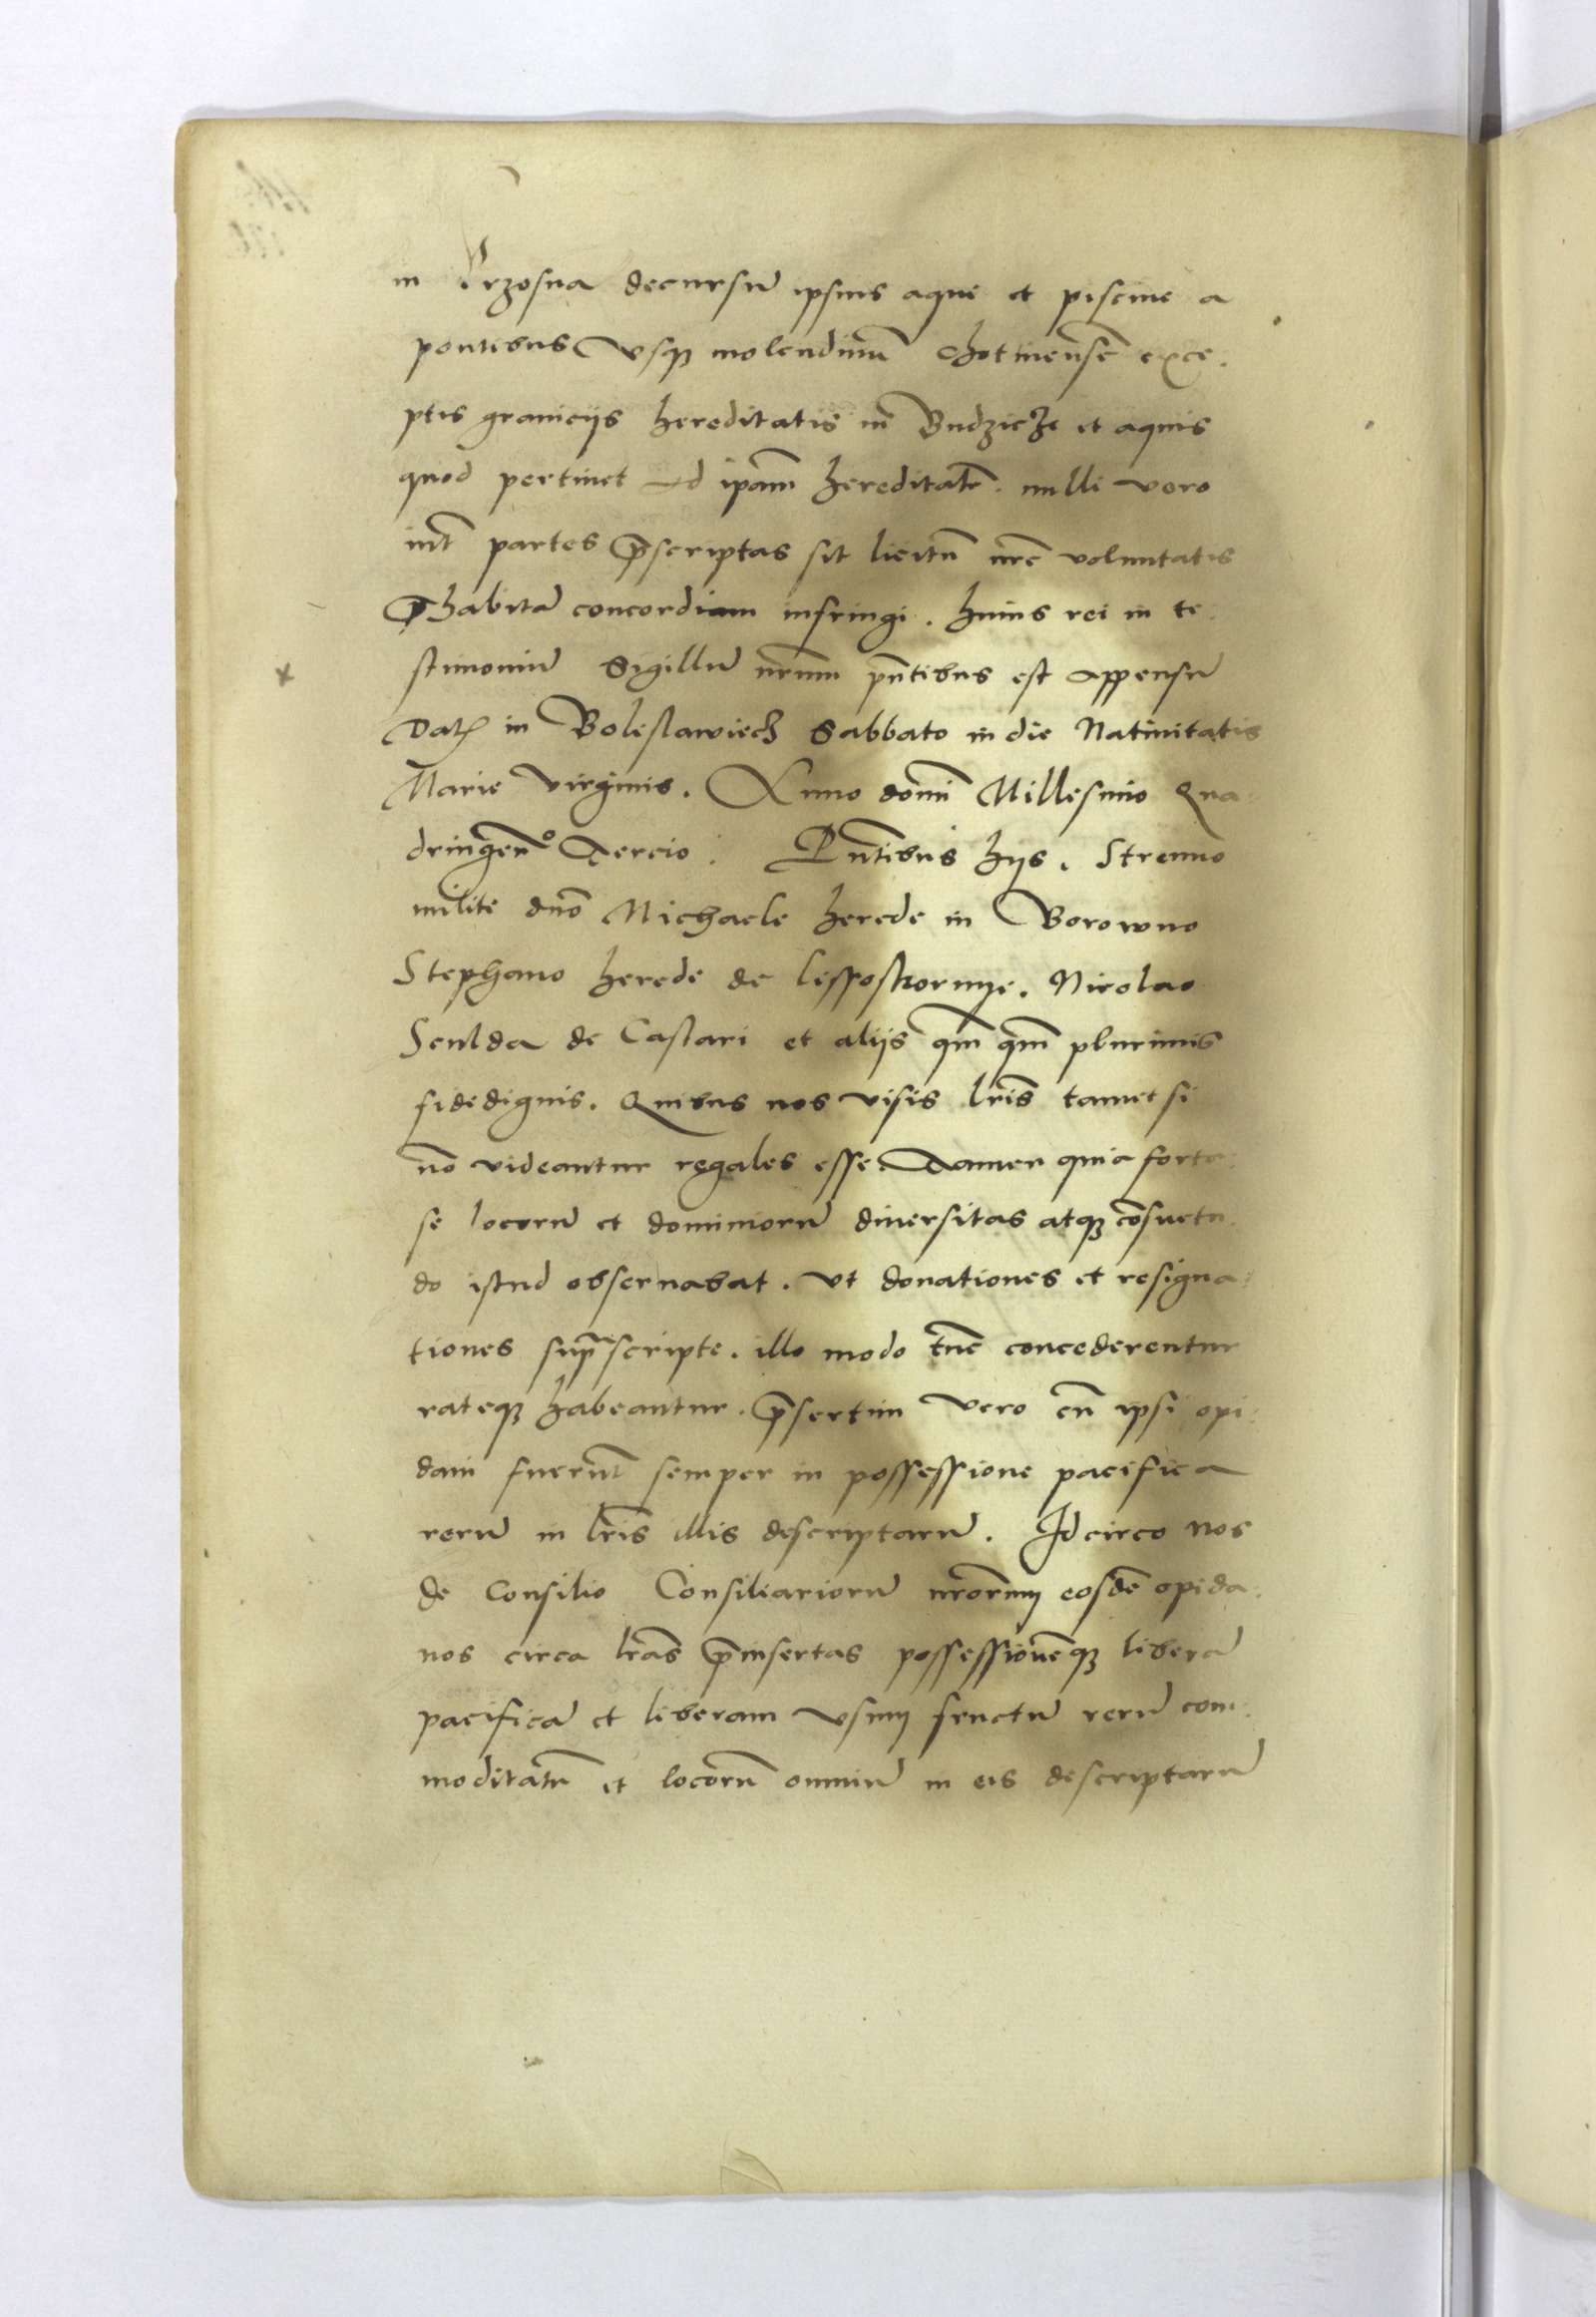 in Przosna decursu̅ ipsius aque et piscine a
pontibus Vsq̨ molendinu̅ Chotinense̅ exce.
ptis granicijs hereditatis in Budzicze et aquis
quod pertinet ad ip̅am hereditate̅. nulli vero
int̅ partes p̅scriptas sit licitu̅ nr̅e voluntatis
p̅habita̅ concordiam infringi. huius rei in te.
stimoniu̅ Sigillu̅ nr̅um pn̅tibus est appensu̅
Dat̅ in Boleslawiecz Sabbato in die Natiuitatis
Marie virginis. Anno domi̅ Millesimo Qua:
dringen̅º Tercio. Pn̅tibus hijs. Strenuo
milite dn̅o Michaele herede in Borowno
Stephano herede de Nicolao
Sculda de Castari et alijs qm̅ qm̅ plurimis
fidedignis. Quibus nos visis lr̅is tametsi
no̅ videantur regales esse. Tamen quia forta:
se locoru̅ et dominioru̅ diuersitas atq̨ co̅suetu.
do istud obseruabat. vt donationes et resigna:
tiones sup̅scripte. illo modo tu̅c concederentur
rateq̨ habeantur. p̅sertim vero cu̅ ipsi opi:
dani fueru̅t semper in possessione pacifica
reru̅ in lr̅is illis descriptaru̅. Idcirco nos
de Consilio Consiliarioru̅ nr̅orum eosde̅ opida:
nos circa lr̅as p̅insertas possessione̅q̨ libera̅
pacifica̅ et liberam vsum fructu̅ reru̅ com:
moditatu̅ et locoru̅ omniu̅ in eis descriptaru̅